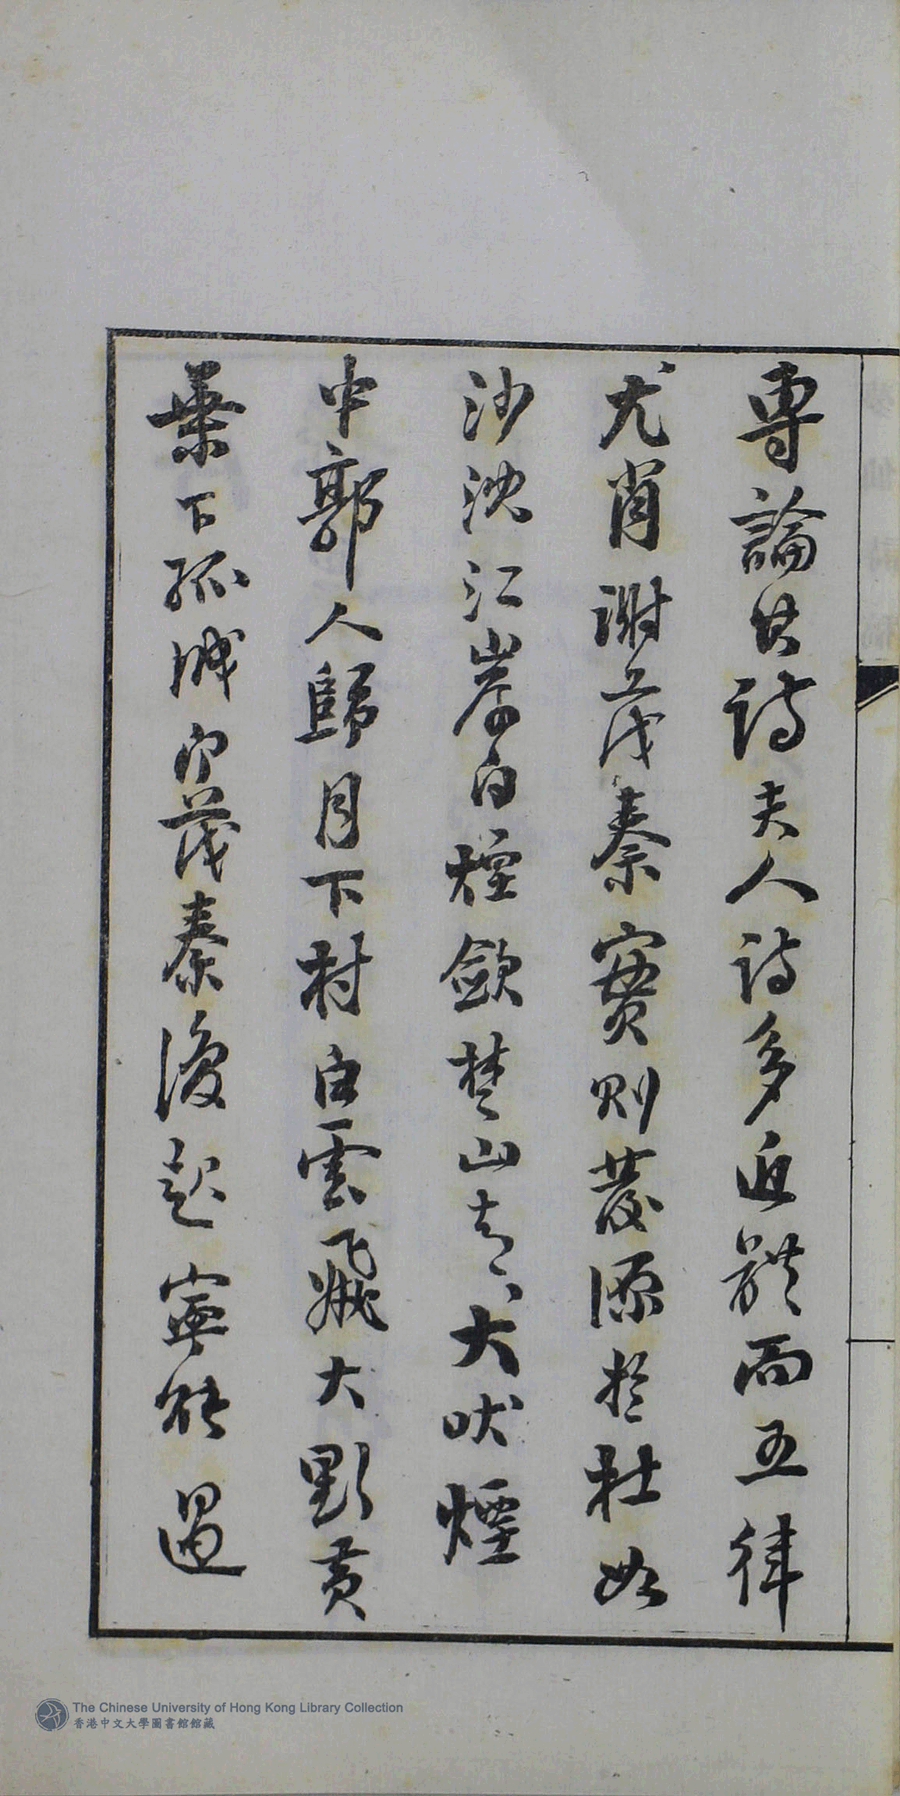 專論其詩夫人詩多近體而五律
尤肖謝茂秦實則發源於杜如
沙沈江岸白煙斂楚山青犬吠煙
中郭人歸月下村白雲飛大野黃
葉下孤城即茂秦復起寧能過
The Chinese University of Hong Kong Library Collection
香港中文大學圖書館館藏